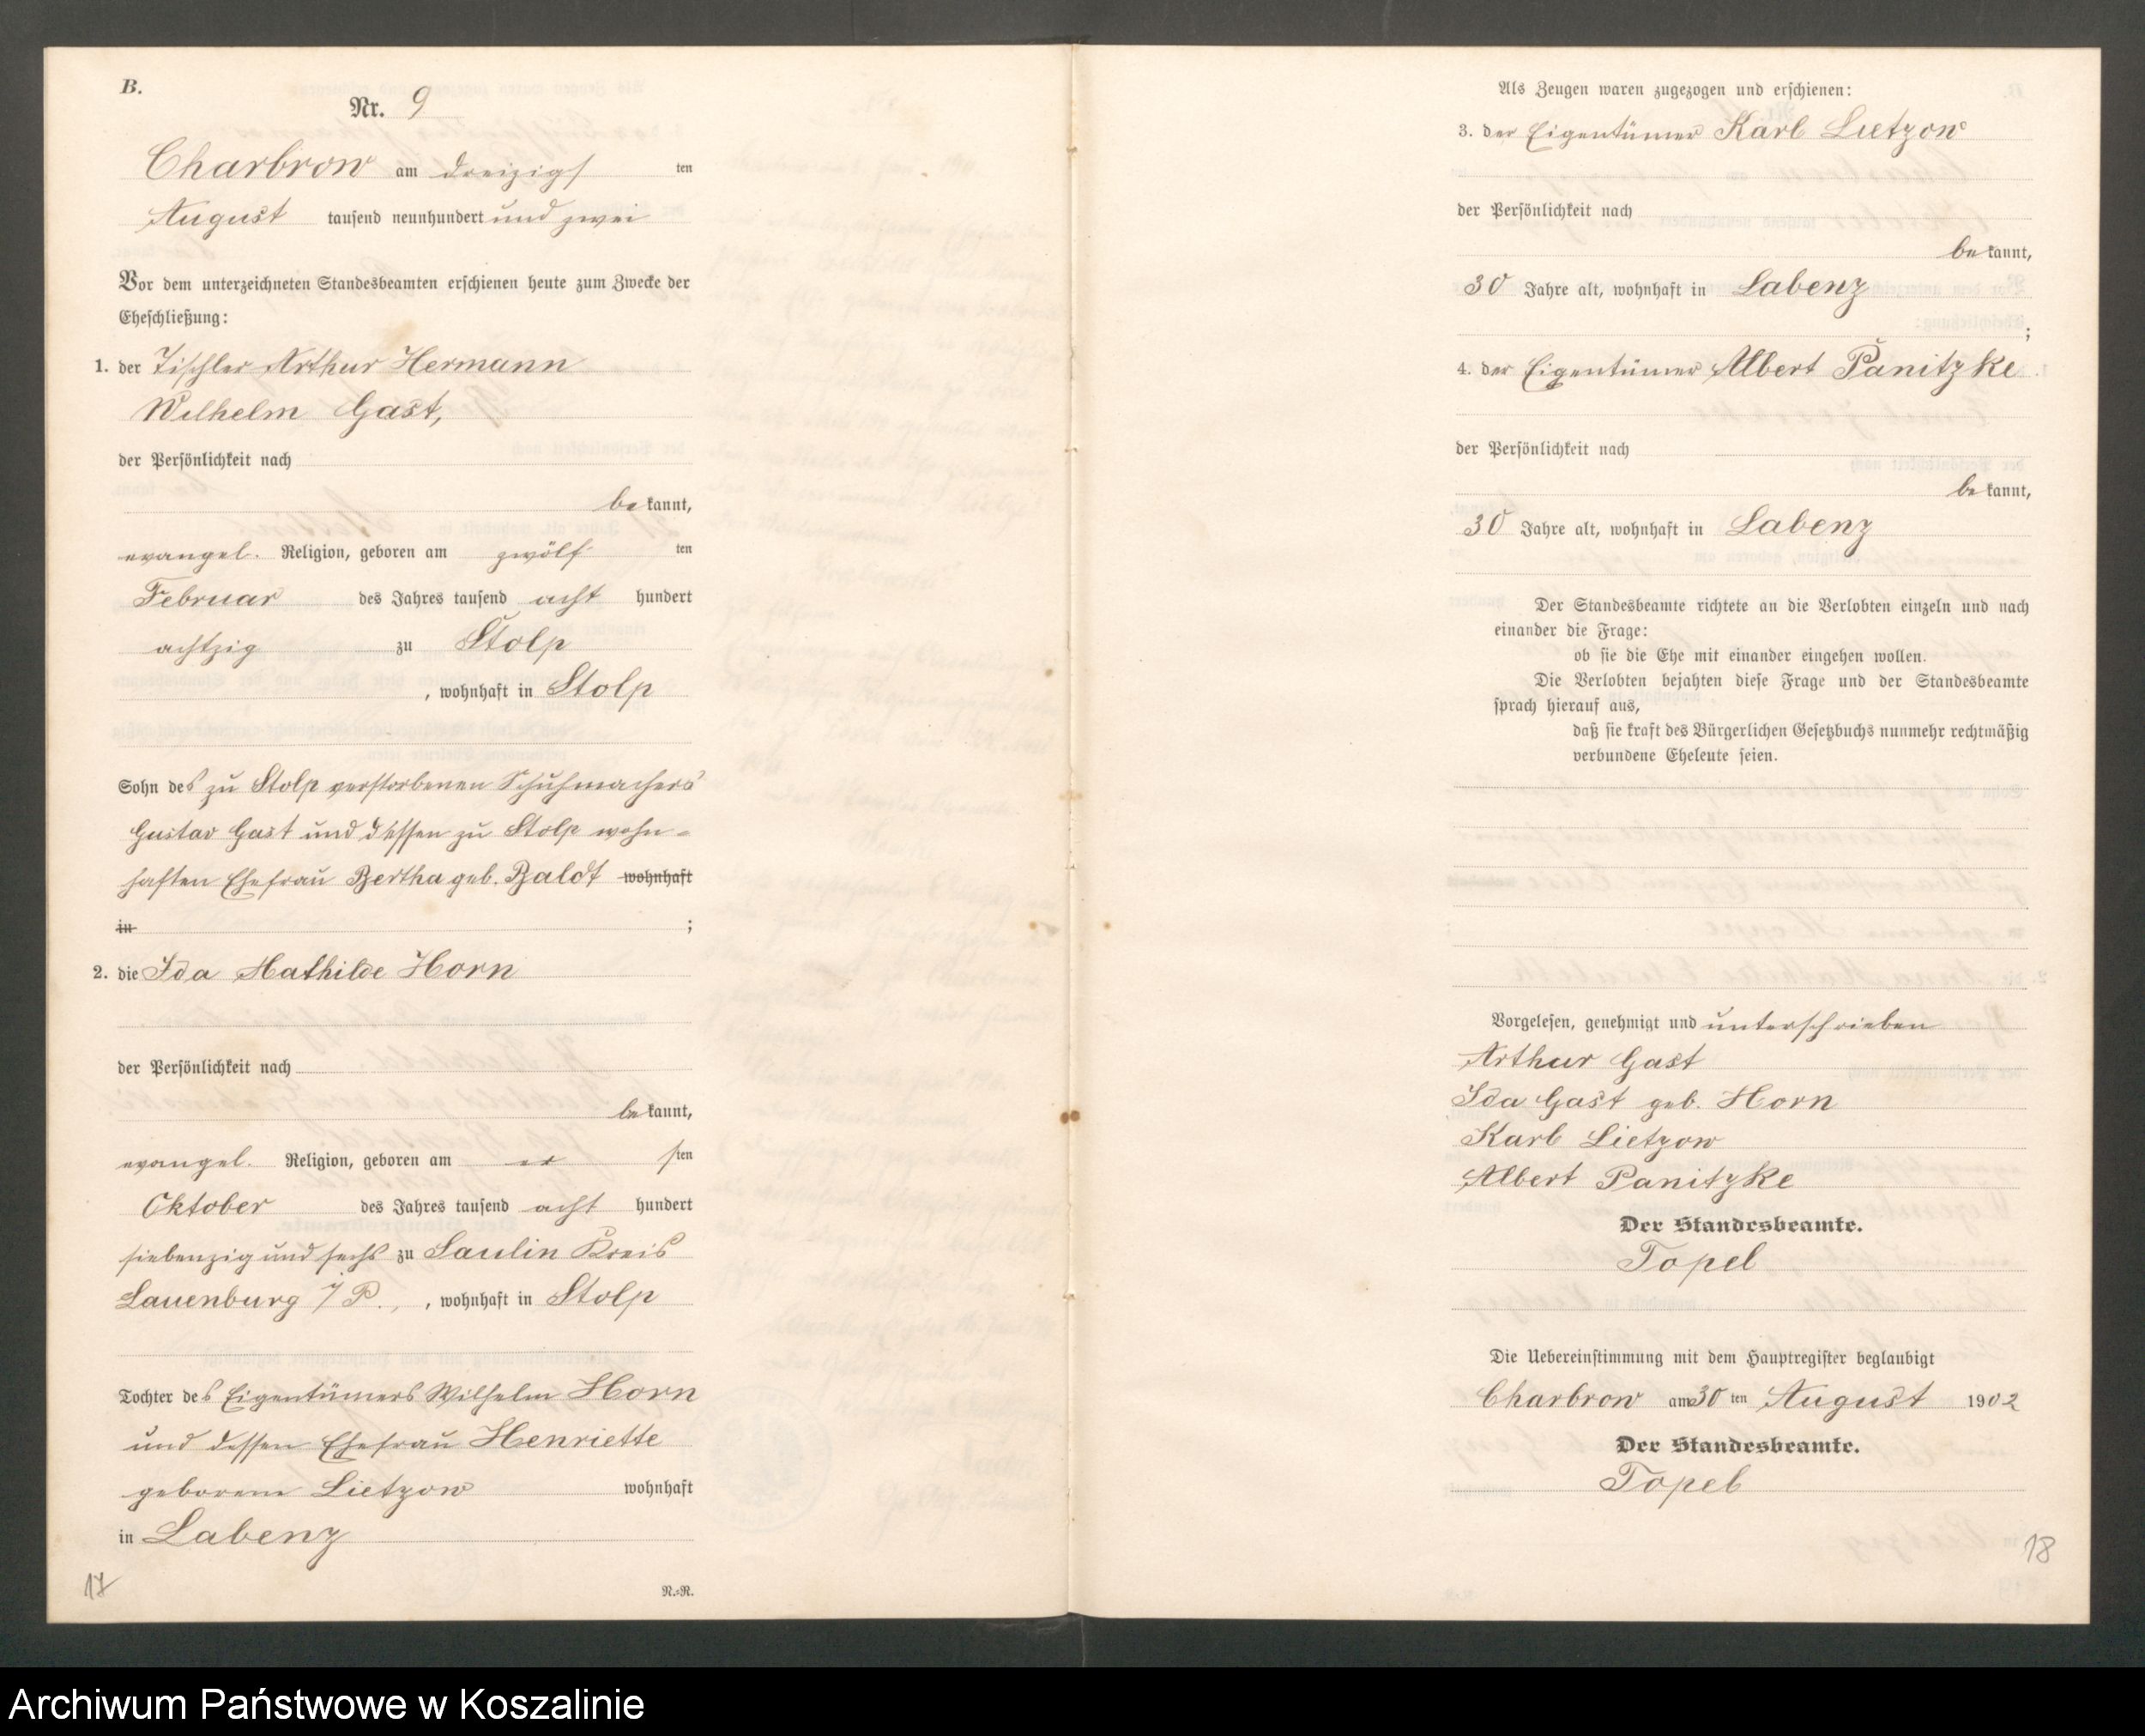 B.
Nr. 9
Charbrow am dreizigs ten
August tausend neunhundert und zwei
Vor dem unterzeichneten Standesbeamten erschienen heute zum Zwecke der
Eheschließung:
1. der Tischler Arthur Hermann
Wilhelm Gast,
der Persönlichkeit nach
be kannt,
evangel. Religion, geboren am zwölf ten
Februar des Jahres tausend acht hundert
achtzig zu Stolp
, wohnhaft in Stolp
Sohn des zu Stolp verstorbenen Schuhmachers
Gustav Gast und dessen zu Stolp wohn-
haften Ehefrau Bertha geb. Baldt wohnhaft
in ;
2. die Ida Mathilde Horn
der Persönlichkeit nach
be kannt,
evangel. Religion, geboren am er sten
Oktober des Jahres tausend acht hundert
siebenzig und sechs zu Saulin Kreis
Lauenburg i/P. , wohnhaft in Stolp
Tochter des Eigentümers Wilhelm Horn
und dessen Ehefrau Henriette
geborene Lietzow wohnhaft
in Labenz
17
N.-R.
Als Zeugen waren zugezogen und erschienen:
3. der Eigentümer Karl Lietzow
der Persönlichkeit nach
be kannt,
30 Jahre alt, wohnhaft in Labenz
;
4. der Eigentümer Albert Panitzke
der Persönlichkeit nach
be kannt,
30 Jahre alt, wohnhaft in Labenz
Der Standesbeamte richtete an die Verlobten einzeln und nach
einander die Frage:
ob sie die Ehe mit einander eingehen wollen.
Die Verlobten bejahten diese Frage und der Standesbeamte
sprach hierauf aus,
daß sie kraft des Bürgerlichen Gesetzbuchs nunmehr rechtmäßig
verbundene Eheleute seien.
Vorgelesen, genehmigt und unterschrieben
Arthur Gast
Ida Gast geb. Horn
Karl Lietzow
Albert Panitzke
Der Standesbeamte.
Topel
Die Uebereinstimmung mit dem Hauptregister beglaubigt
Charbrow am 30 ten August 1902
Der Standesbeamte.
Topel
18
Archiwum Państwowe w Koszalinie